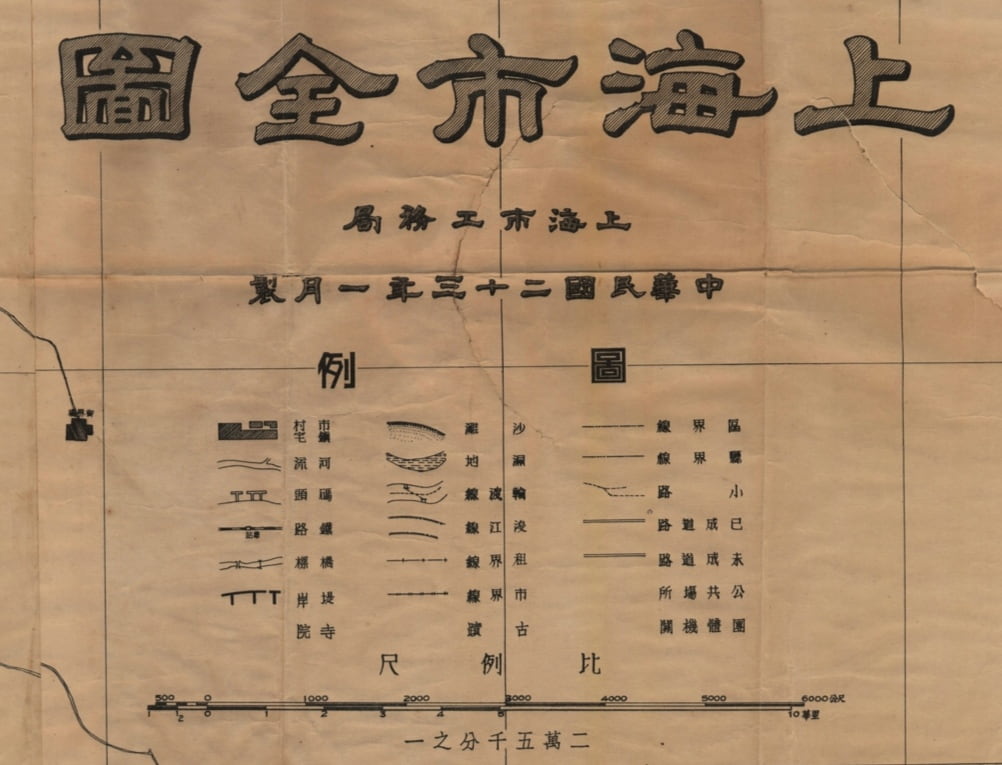 上海市全圖
上海市工務局
中華民國二十三年一月製
圖例
區界線
縣界線
小路
已成道路
未成道路
公共場所
團體機關
沙灘
濕地
輪渡線
浚江線
租界線
市界線
古蹟
市鎮村宅
河流
碼頭
鐵路
車站
橋樑
堤岸
寺院
比例尺
500 0 1000 2000 3000 4000 5000 6000公尺
1 2 0 1 2 3 4 5 10華里
二萬五千分之一